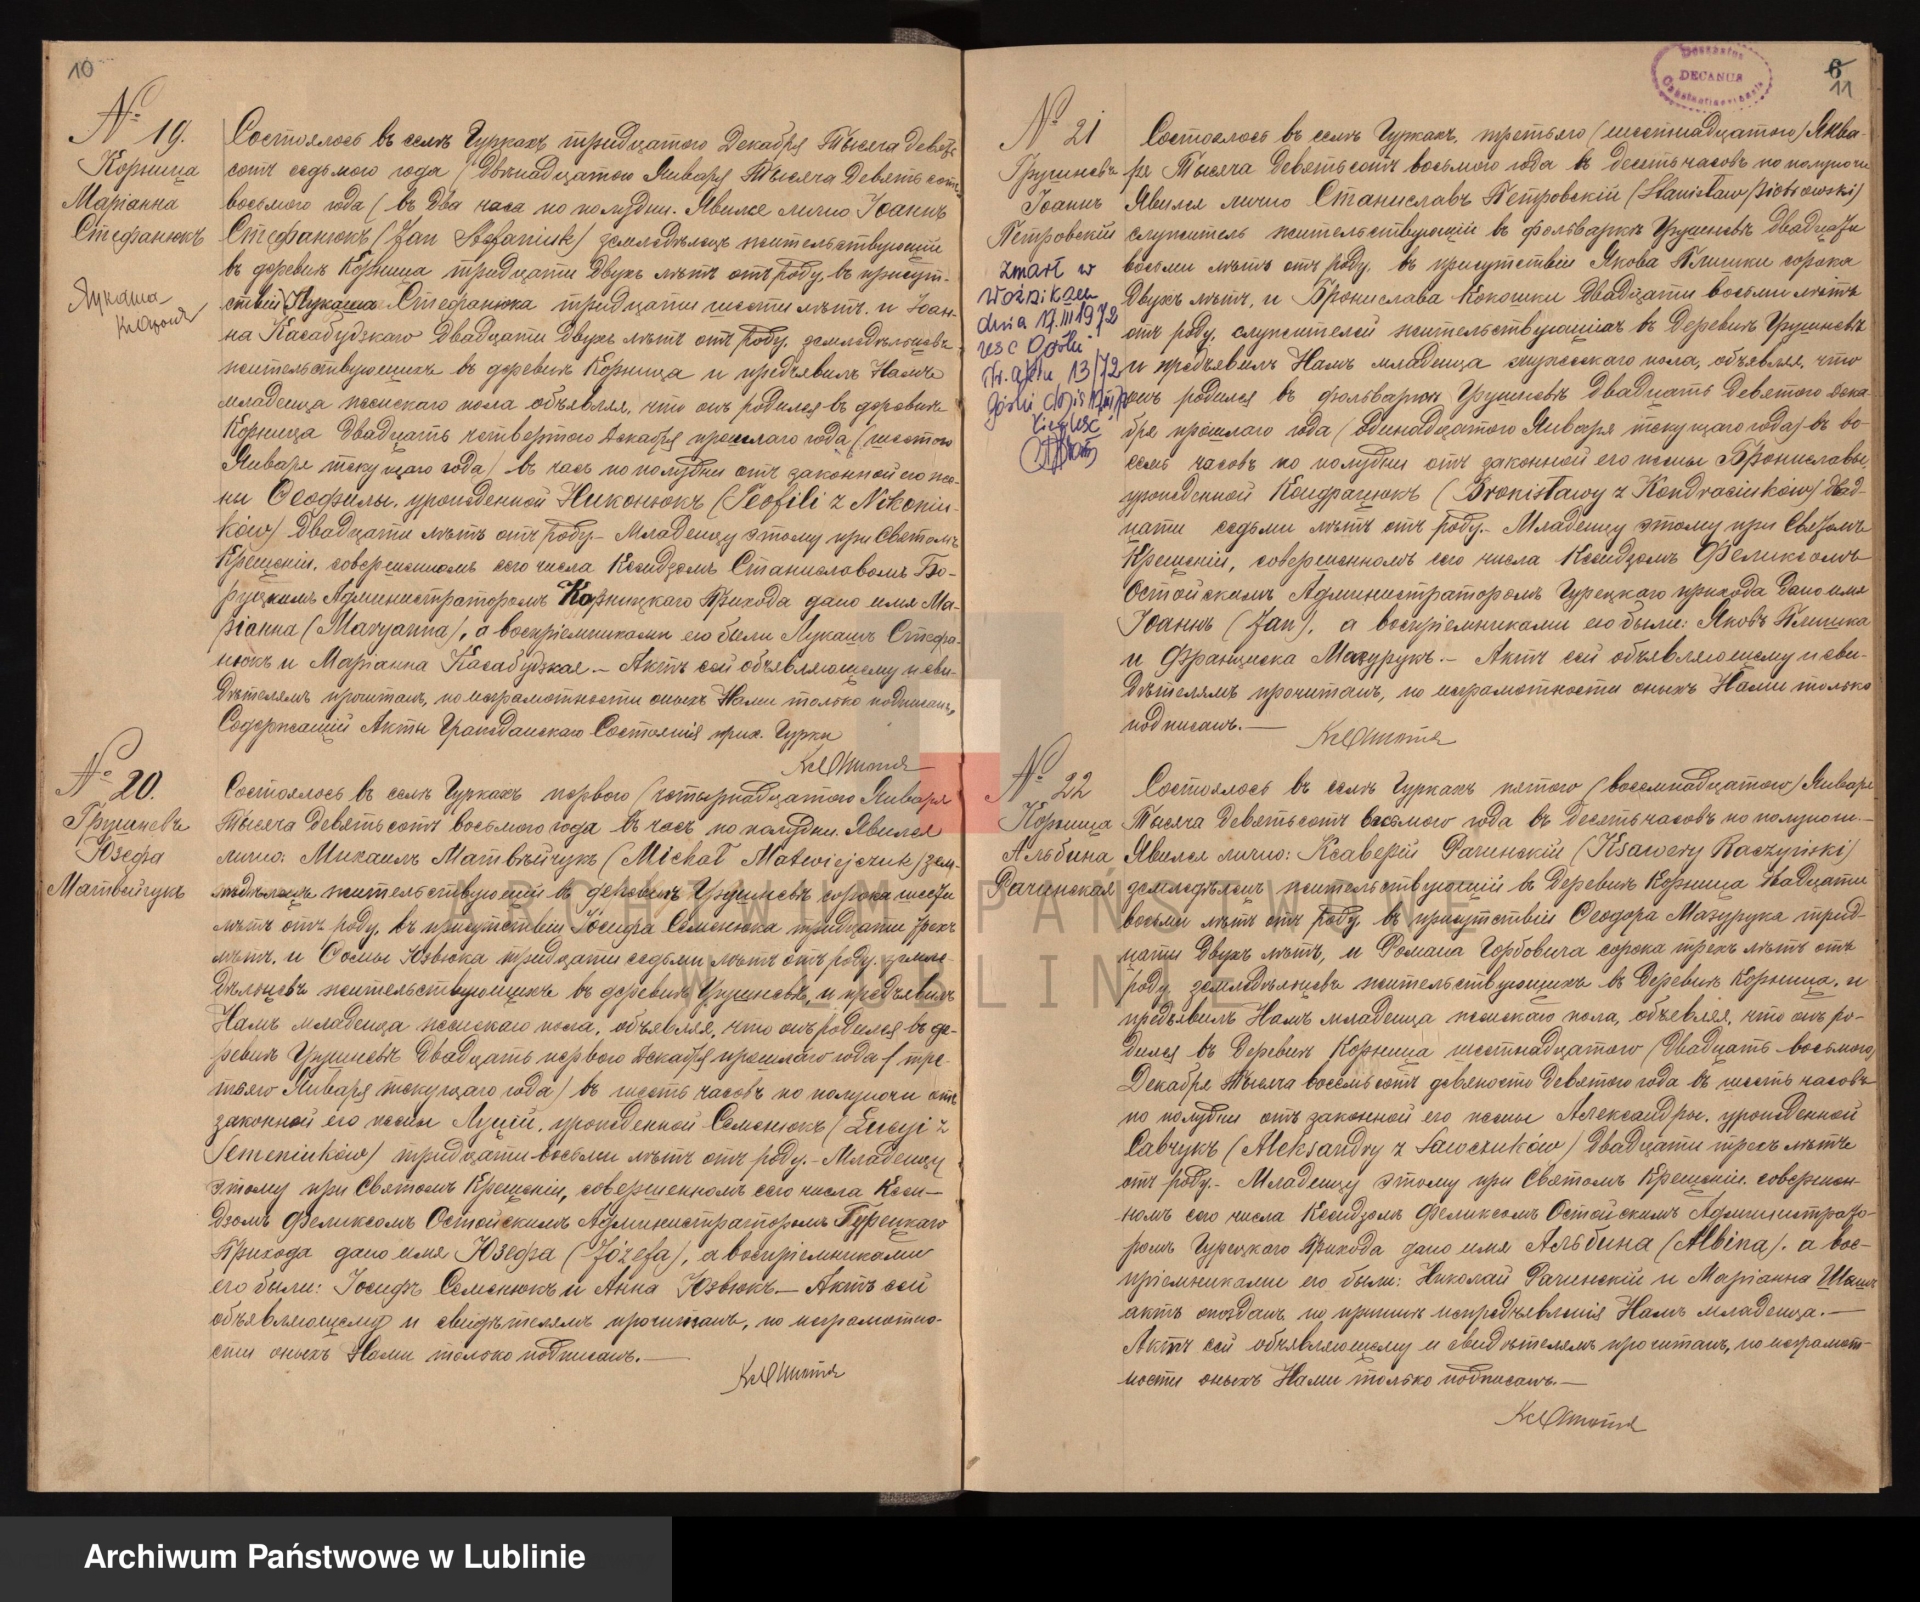 10
№ 19.
Корница
Маріанна
Стефанюкъ
Лукаша
Состоялось въ селѣ Гуркахъ тридцатого Декабря Тысяча девять
сотъ седьмого года (Двѣнадцатого Января Тысяча Девятьсотъ
восьмого года) въ два часа по полудни. Явился лично Іоаннъ
Стефанюкъ (Jan Stefaniuk) земледѣлецъ жительствующій
въ деревнѣ Корница тридцати двухъ лѣтъ отъ роду, въ присут-
ствіи Лукаша Стефанюка тридцати шести лѣтъ и Іоан-
на Касабудзкаго двадцати двухъ лѣтъ отъ роду, земледѣльцевъ
жительствующихъ въ деревнѣ Корница и предъявилъ Намъ
младенца женскаго пола объявляя, что онъ родился въ деревнѣ
Корница двадцать четвертого Декабря прошлаго года (шестого
Января текущаго года) въ часъ по полудни отъ законной его же-
ни Ѳеофилы, урожденной Никонюкъ (Teofili z Nikoniu-
ków) двадцати лѣтъ отъ роду.- Младенцу этому при Святомъ
Крещеніи, совершенномъ сего числа Ксендзомъ Станиславомъ
Администраторомъ Корницкаго Прихода дано имя Ма-
ріанна (Maryanna), а воспріемниками его были Лукашъ Стефа-
нюкъ и Маріанна Касабудзкая.- Актъ сей объявляющему и сви-
дѣтелямъ прочитанъ, по неграмотности оныхъ Нами только подписанъ.
Содержащій Акты Гражданскаго Состоянія прих. Гурки
№ 20.
Грушневъ
Юзефа
Матвейчукъ
Состоялось въ селѣ Гуркахъ первого (четырнадцатого) Января
Тысяча девятьсотъ восьмого года въ часъ по полудни. Явился
лично: Михаилъ Матвѣйчукъ (Michał Matwiejczuk) зем-
ледѣлецъ жительствующій въ деревнѣ Грушневъ сорока шести
лѣтъ отъ роду, въ присутствіи Іосифа Семенюка тридцати трехъ
лѣтъ, и Ѳомы Юзвюка тридцати седьми лѣтъ отъ роду, земле-
дѣльцевъ жительствующихъ въ деревнѣ Грушневѣ, и предъявилъ
Намъ младенца женскаго пола, объявляя, что онъ родился въ де-
ревнѣ Грушневъ двадцать первого Декабря прошлаго года (тре-
тьяго Января текущаго года) въ шесть часовъ по полуночи отъ
законной его жены Луціи, урожденной Семенюкъ (Łucyi z
Semeniuków) тридцати восьми лѣтъ отъ роду.- Младенцу
этому при Святомъ Крещеніи, совершенномъ сего числа Ксен-
дзомъ Феликсомъ Остойскимъ Администраторомъ Гурецкаго
Прихода дано имя Юзефа (Józefa), а воспріемниками
его были: Іосифъ Семенюкъ и Анна Юзвюкъ.- Актъ сей
объявляющему и свидѣтелямъ прочитанъ, по неграмотно-
сти оныхъ Нами только подписанъ.-
DECANUS
6
11
№ 21
Грушневъ
Іоаннъ
Петровскій
zmarł w
dnia 17.III 1972
usc Górki
Nr. aktu 13/72
Состоялось въ селѣ Гуркахъ, третьяго (шестнадцатого) Янва-
ря Тысяча Девятьсотъ восьмого года въ десять часовъ по полуночи
Явился лично Станиславъ Петровскій (Stanisław Piotrowski)
служитель жительствующій въ фольваркѣ Грушневъ двадцати
восьми лѣтъ отъ роду, въ присутствіи Якова Плишки сорока
двухъ лѣтъ, и Бронислава Кокошки двадцати восьми лѣтъ
отъ роду, служителей жительствующихъ въ деревнѣ Грушневъ
и предъявилъ Намъ младенца мужескаго пола, объявляя, что
онъ родился въ фольваркѣ Грушневъ двадцать девятого Дека-
бря прошлаго года (одинадцатого Января текущаго года) въ во-
семь часовъ по полудни отъ законной его жены Брониславы,
урожденной Кондрацюкъ (Bronisławy z Kondraciuków) двад-
цати седьми лѣтъ отъ роду.- Младенцу этому при Святомъ
Крещеніи, совершенномъ сего числа Ксендзомъ Феликсомъ
Остойскимъ Администраторомъ Гурецкаго прихода дано имя
Іоаннъ (Jan), а воспріемниками его были: Яковъ Плишка
и Франциска Мазурукъ.- Актъ сей объявляющему и сви-
дѣтелямъ прочитанъ, по неграмотности оныхъ Нами только
подписанъ.-
№ 22
Корница
Альбина
Рачинская
Состоялось въ селѣ Гуркахъ пятого (восемнадцатого) Января
Тысяча девятьсотъ восьмого года въ десять часовъ по полуночи.-
Явился лично: Ксаверій Рачинскій (Ksawery Raczyński)
земледѣлецъ жительствующій въ деревнѣ Корница двадцати
восьми лѣтъ отъ роду, въ присутствіи Ѳеодора Мазурука трид-
цати двухъ лѣтъ, и Романа Горбовича сорока трехъ лѣтъ отъ
роду, земледѣльцевъ жительствующихъ въ деревнѣ Корница, и
предъявилъ Намъ младенца женскаго пола, объявляя, что онъ ро-
дился въ деревнѣ Корница шестнадцатого (двадцать восьмого)
Декабря Тысяча восемьсотъ девяносто девятого года въ шесть часовъ
по полудни отъ законной его жены Александры, урожденной
Савчукъ (Aleksandry z Sawczuków) двадцати трехъ лѣтъ
отъ роду.- Младенцу этому при Святомъ Крещеніи, совершен-
номъ сего числа Ксендзомъ Феликсомъ Остойскимъ Администрато-
ромъ Гурецкаго Прихода дано имя Альбина (Albina), а вос-
пріемниками его были: Николай Рачинскій и Маріанна
актъ опозданъ по причинѣ непредъявленія Намъ младенца.-
Актъ сей объявляющему и свидѣтелямъ прочитанъ, по неграмот-
ности оныхъ Нами только подписанъ.-
ARCHIWUM PAŃSTWOWE
W LUBLINIE
Archiwum Państwowe w Lublinie